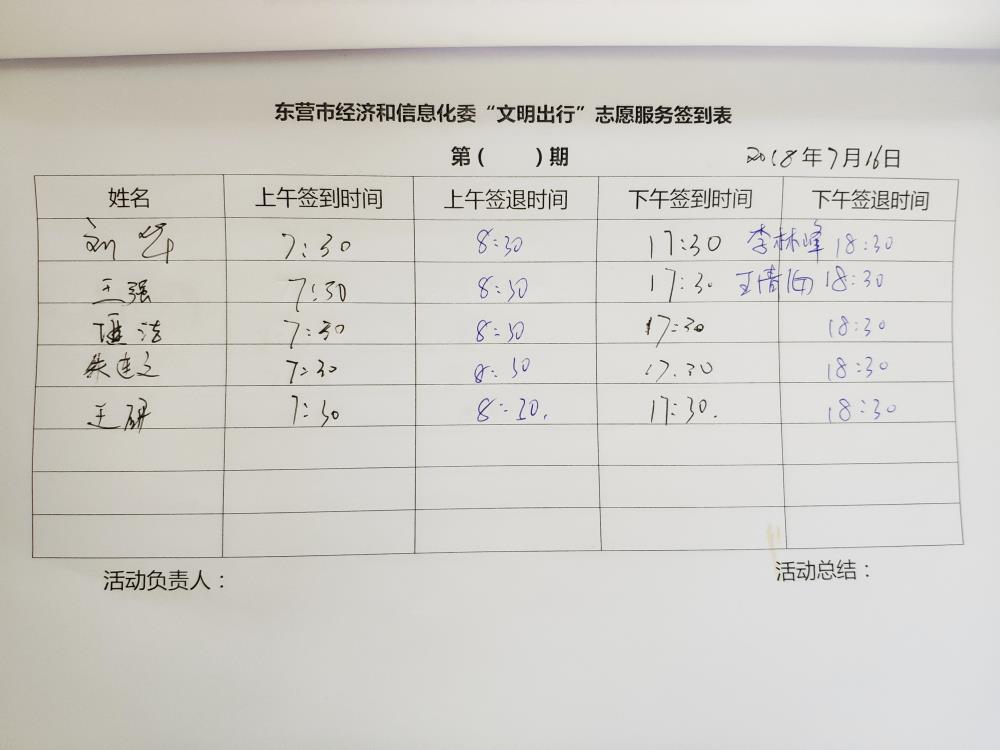 东营市经济和信息化委“文明出行”志愿服务签到表
第( )期 2018年7月16日
姓名 上午签到时间 上午签退时间 下午签到时间 下午签退时间
刘华 7:30 8:30 17:30 李林峰 18:30
王强 7:30 8:30 17:30 王倩 18:30
7:30 8:30 17:30 18:30
朱建文 7:30 8:30 17.30 18:30
王研 7:30 8:30. 17:30. 18:30
活动负责人： 活动总结：